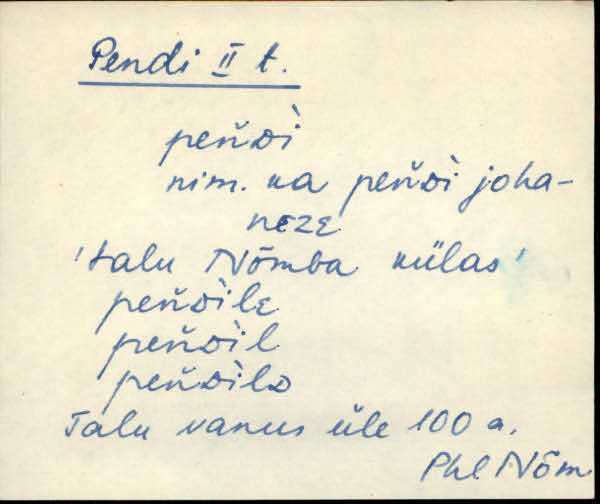 Pendi II t.
peňᴅì
nim. ka peňᴅì joha-
neze
'talu Nõmba külas'
peňᴅìle
peňᴅìl
peňᴅìlᴅ
Talu vanus üle 100 a.
Phl Nõm